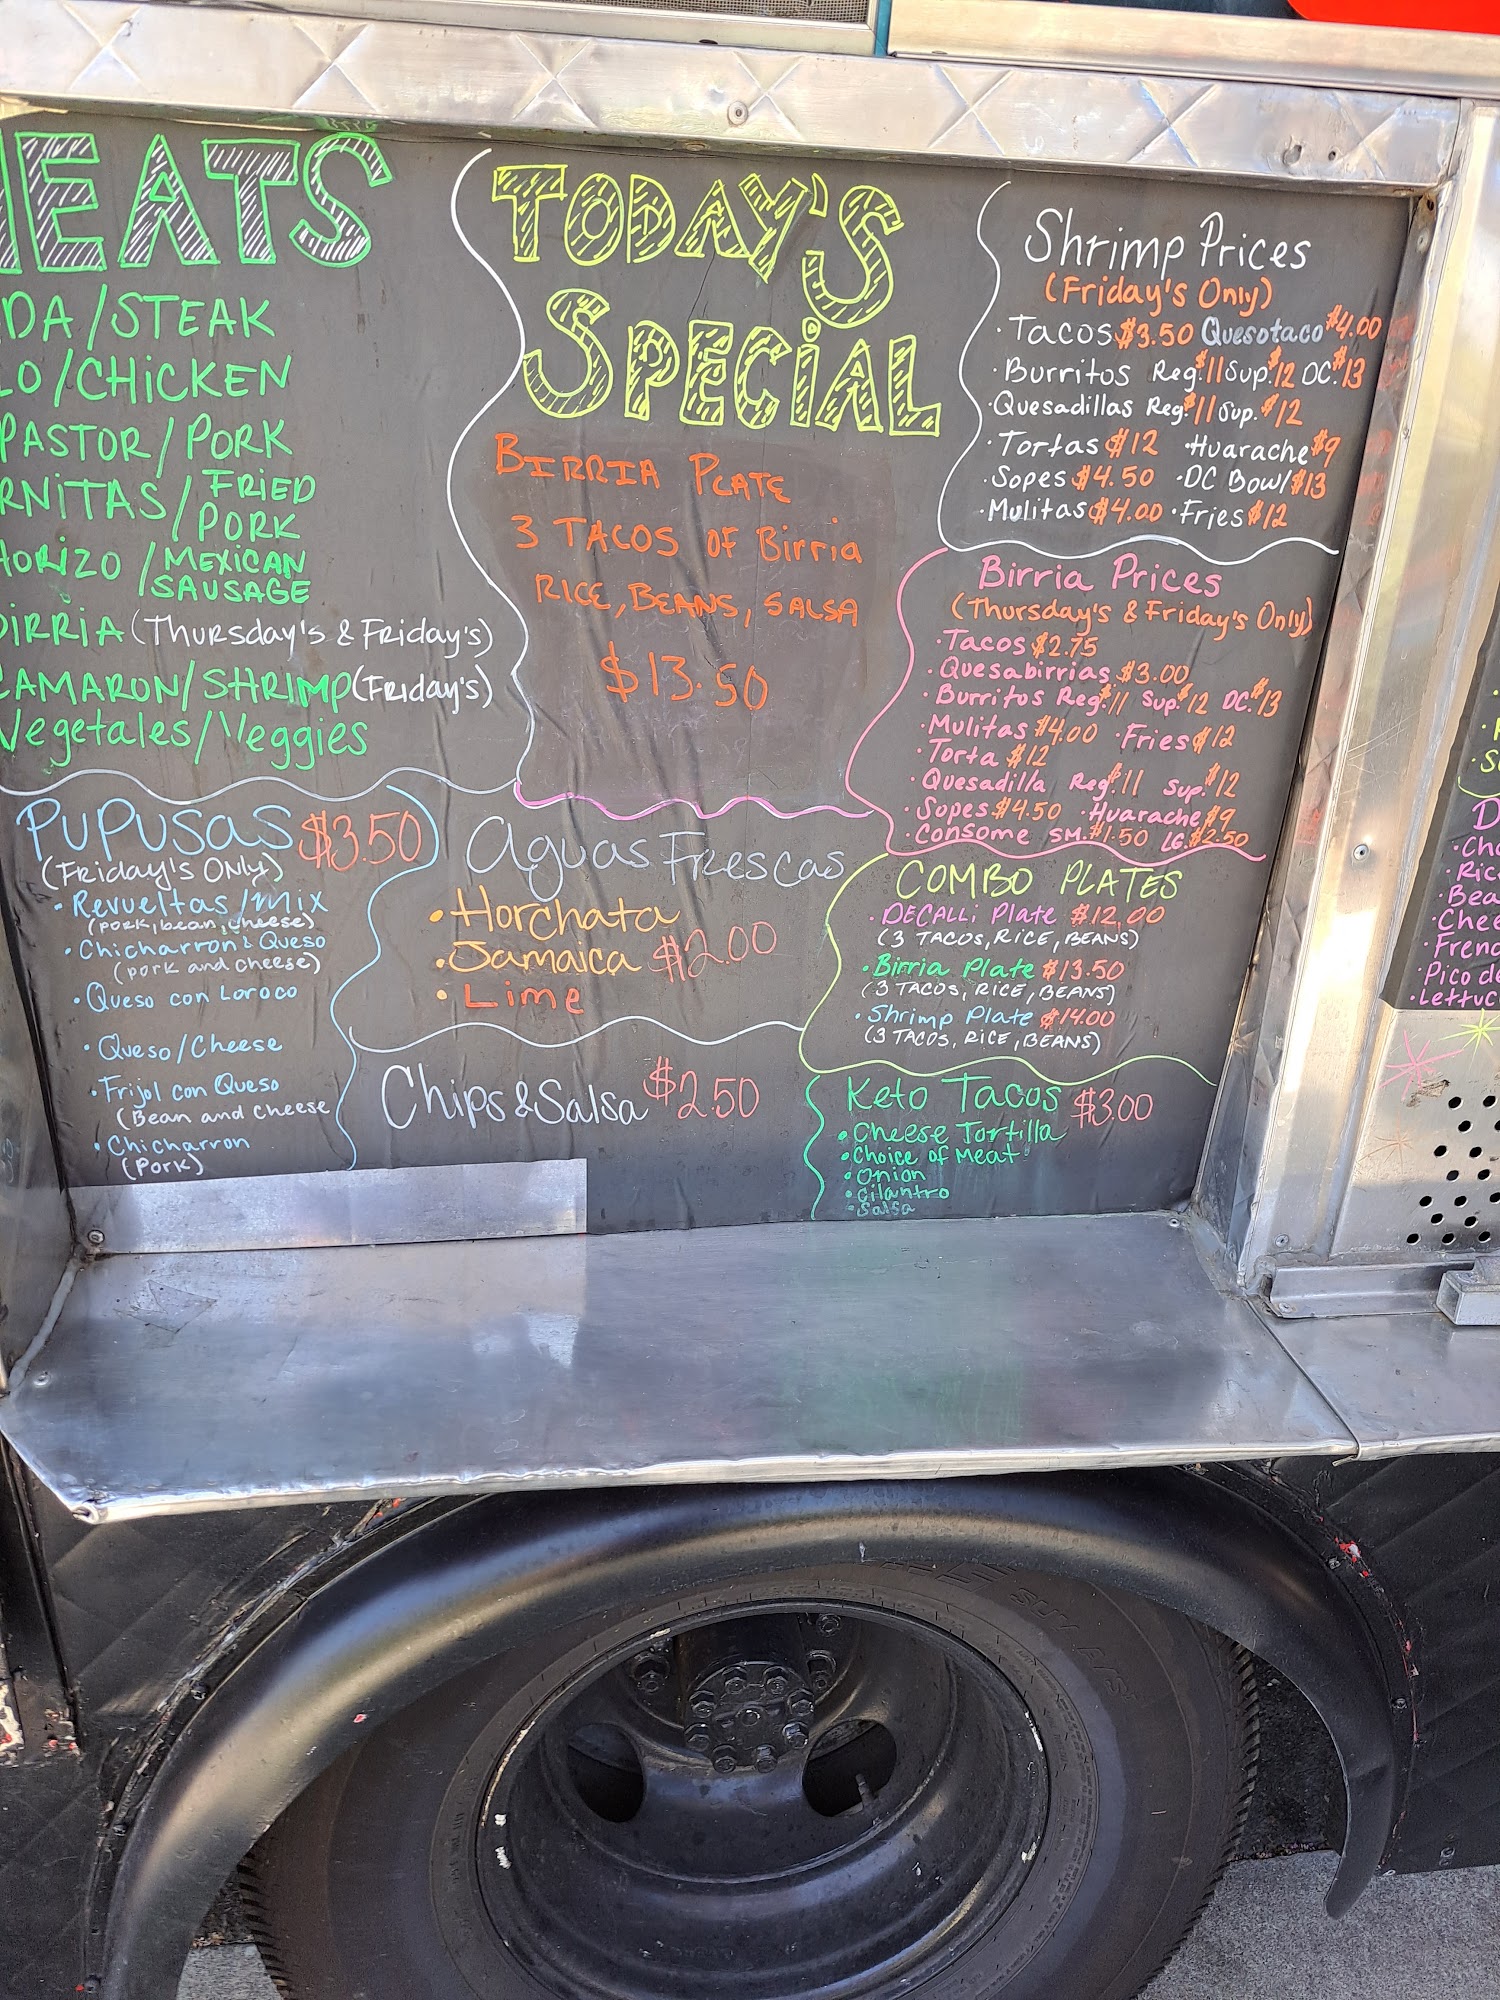 EATS
DA/STEAK
LO/CHICKEN
PASTOR/PORK
RNITAS/FRIED PORK
HORIZO/MEXICAN SAUSAGE
BIRRIA (Thursday's & Friday's)
CAMARON/SHRIMP (Friday's)
Vegetales/Veggies
PUPUSAS $3.50
(Friday's ONLY)
• Revueltas/Mix
(pork, bean, cheese)
• Chicharron & Queso
(pork and cheese)
• Queso con Loroco
• Queso/Cheese
• Frijol con Queso
(Bean and cheese
• Chicharron
(Pork)
TODAY'S
SPECiAL
BIRRIA PLATE
3 TACOS OF Birria
RICE, BEANS, SALSA
$13.50
Aguas Frescas
• Horchata
• Jamaica $2.00
• Lime
Chips & Salsa $2.50
Shrimp Prices
(Friday's Only)
• Tacos $3.50 Quesotaco $4.00
• Burritos Reg. $11 Sup. $12 DC. $13
• Quesadillas Reg. $11 Sup. $12
• Tortas $12 • Huarache $9
• Sopes $4.50 • DC Bowl $13
• Mulitas $4.00 • Fries $12
Birria Prices
(Thursday's & Friday's Only)
• Tacos $2.75
• Quesabirrias $3.00
• Burritos Reg. $11 Sup. $12 DC. $13
• Mulitas $4.00 • Fries $12
• Torta $12
• Quesadilla Reg. $11 Sup. $12
• Sopes $4.50 • Huarache $9
• Consome SM. $1.50 LG. $2.50
COMBO PLATES
• DECALLi Plate $12.00
(3 TACOS, RiCE, BEANS)
• Birria Plate $13.50
(3 TACOS, RICE, BEANS)
• Shrimp Plate $14.00
(3 TACOS, RICE, BEANS)
Keto Tacos $3.00
• Cheese Tortilla
• Choice of Meat
• Onion
• Cilantro
• Salsa
D
• Cho
• Ric
• Bea
• Chee
• Frenc
• Pico de
• Lettuc